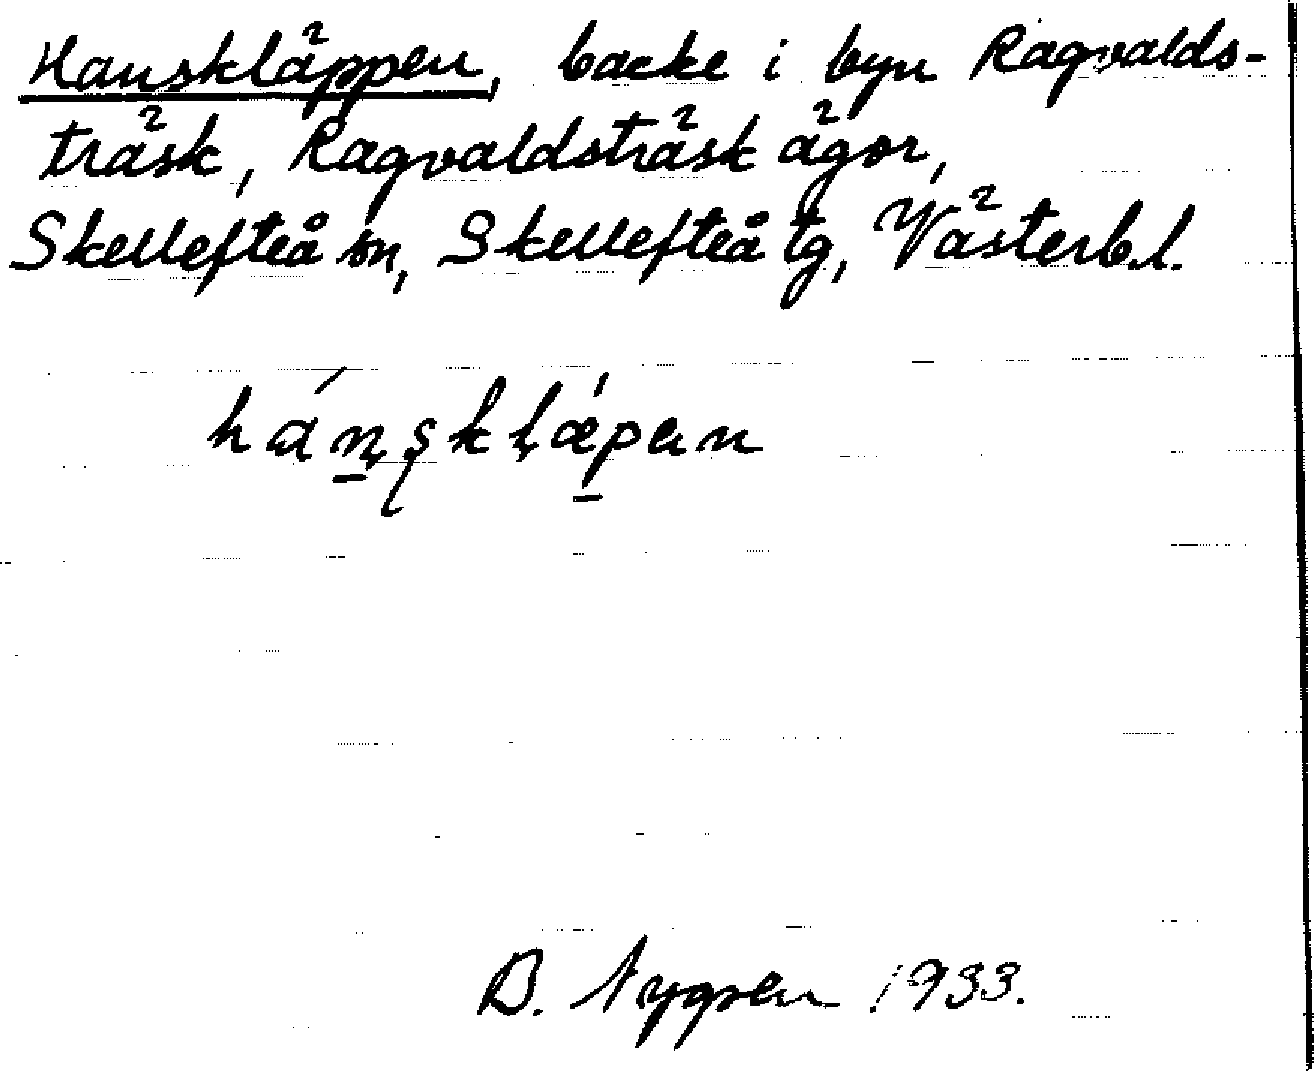 Hanskläppen, backe i byn Ragvalds-
träsk, Ragvaldsträsk ägor,
Skellefteå sn, Skellefteå tg, Västerb. l.
hánskl̥æpan
B. Nygren 1933.